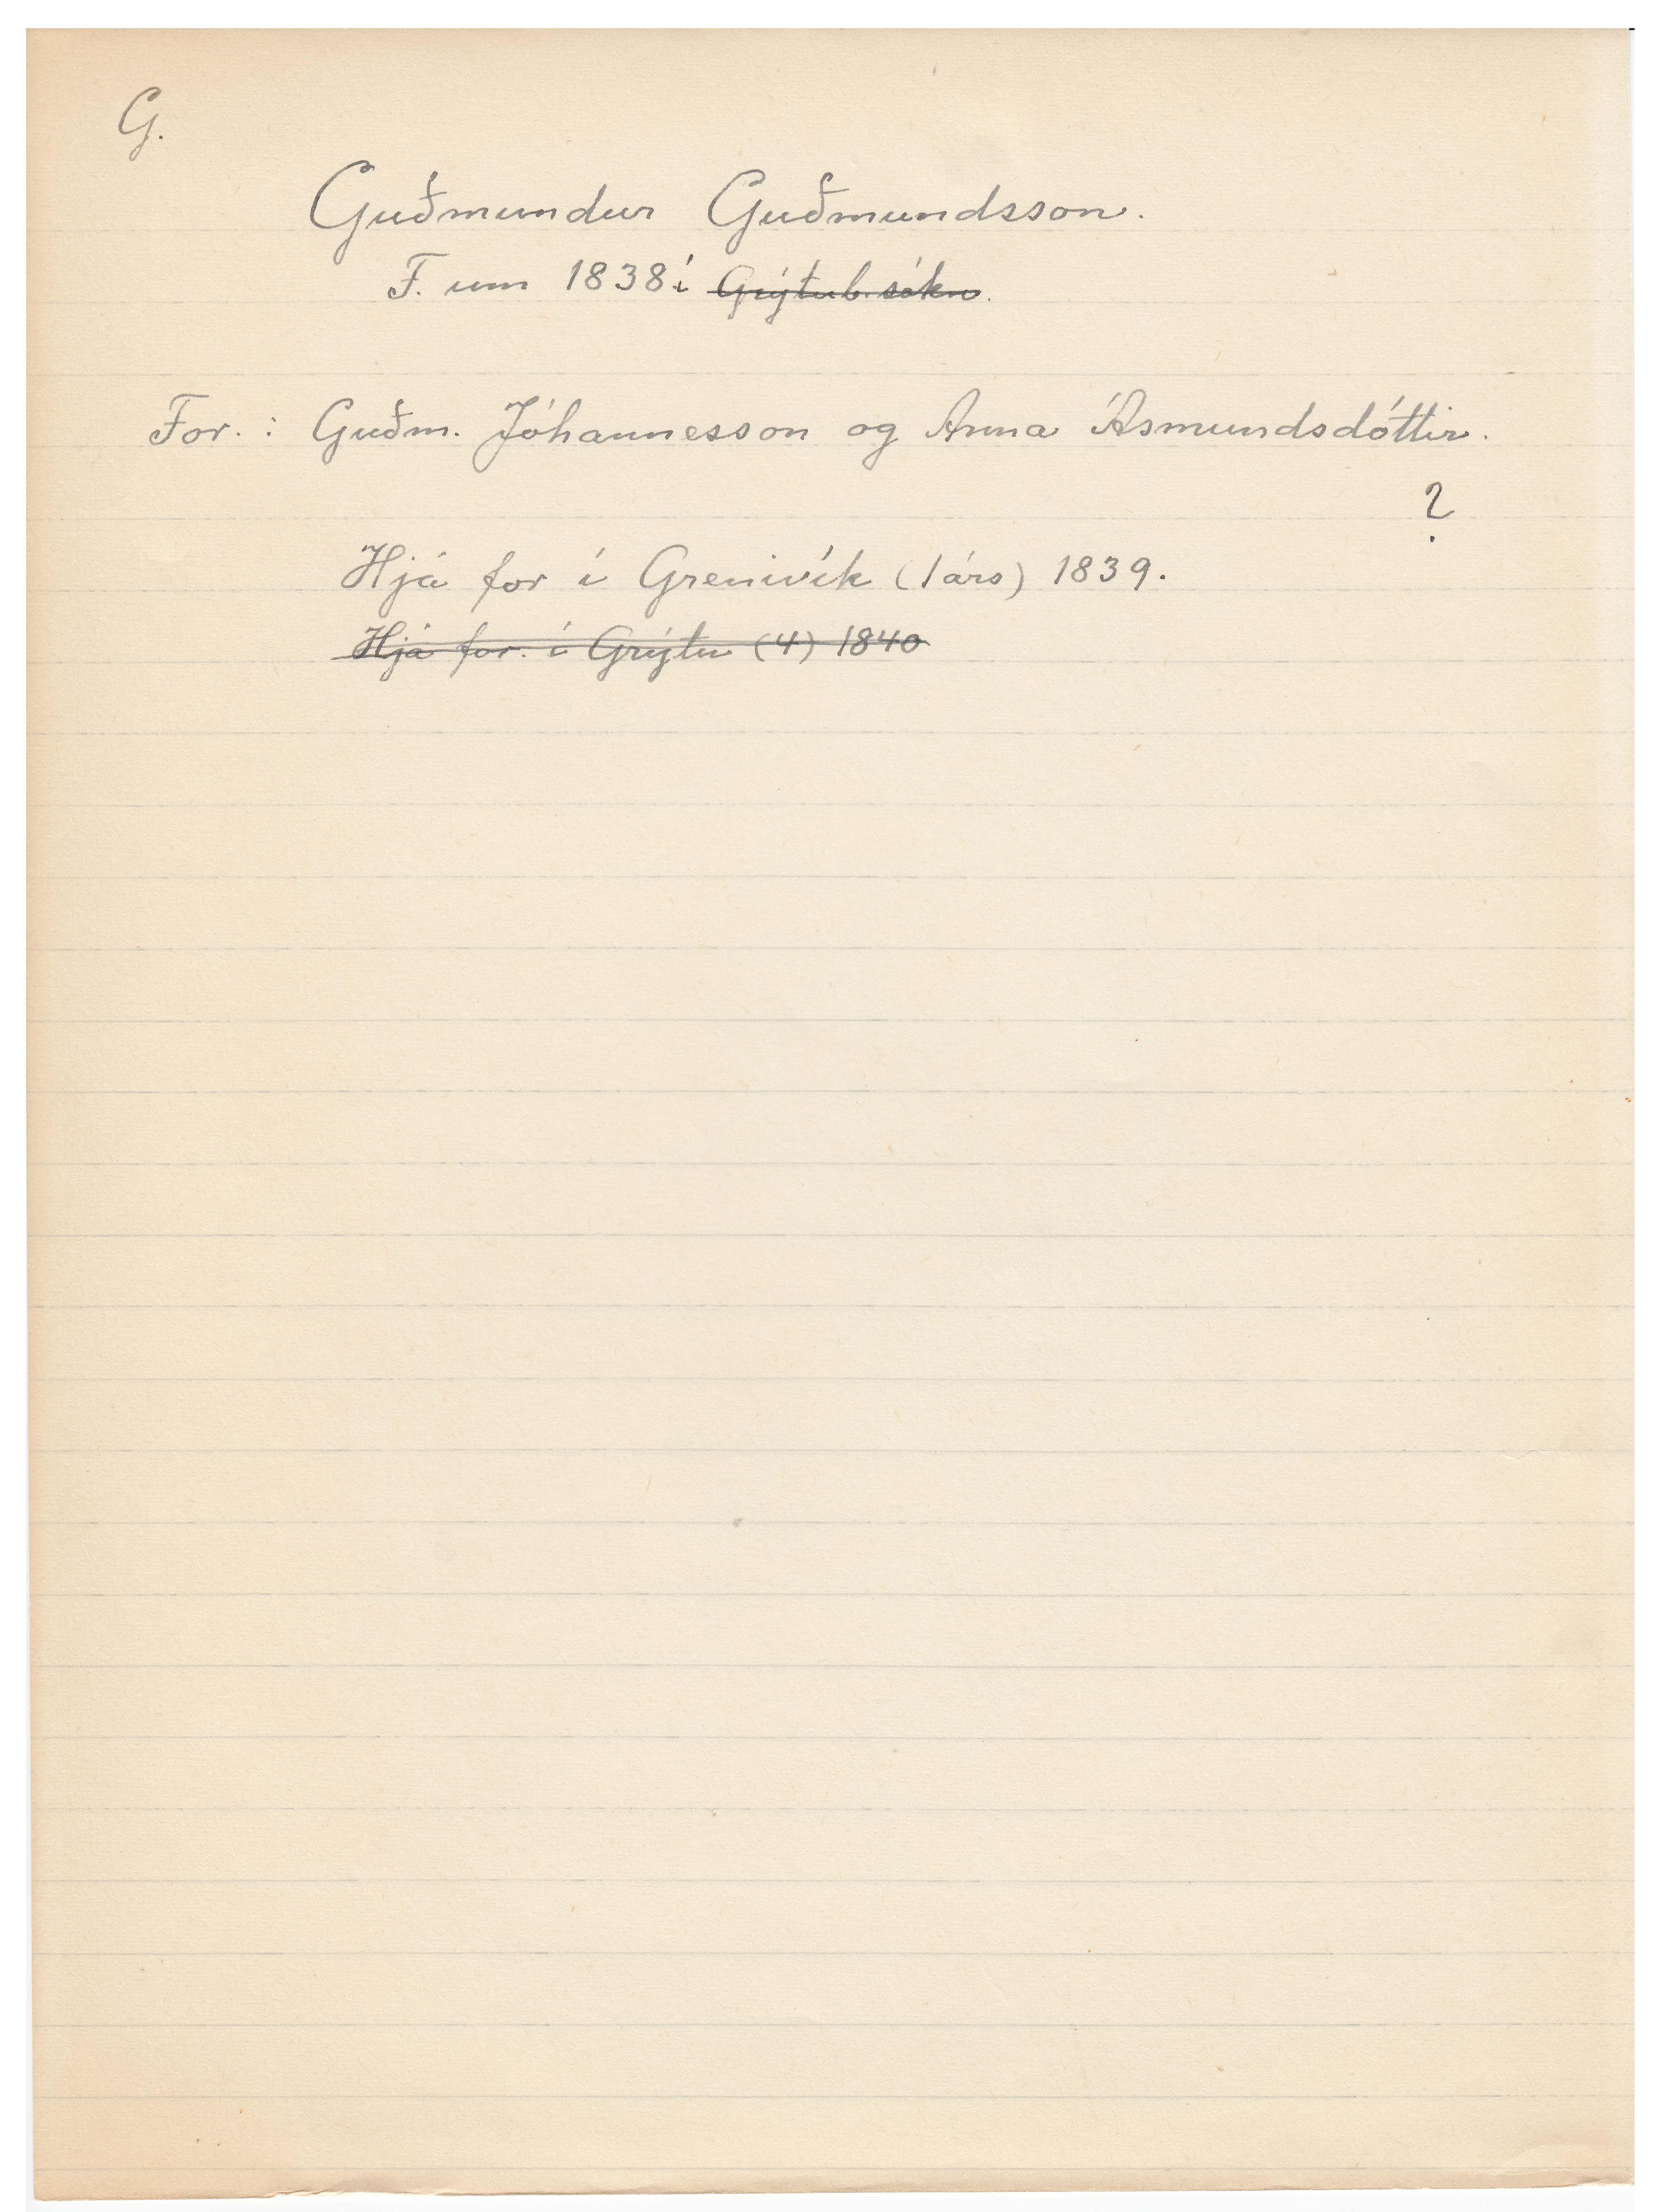 G.
Guðmundur Guðmundsson.
F. um 1838 í Grýtub. sókn.
For. : Guðm. Jóhannesson og Anna Ásmundsdóttir.
?
Hjá for í Grenivík (1 árs) 1839.
Hjá for. í Grýtu (4) 1840